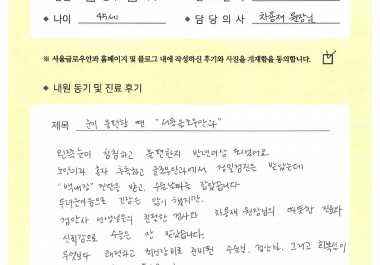 ◆ 나이 45세 ◆ 담당의사 차용재 원장님
※ 서울글로우안과 홈페이지 및 블로그 내에 작성하신 후기와 사진을 게재함을 동의합니다.
◆ 내원 동기 및 진료 후기
제목 눈이 불편할 땐 "서울글로우안과"
왼쪽눈이 침침하고 불편한지 반년이상 되었어요
노안이라 혼자 추측하고 글로우안과에서 정밀검진을 받았는데
"백내장" 진단을 받고, 수술날짜를 잡았습니다
두려운마음으로 긴장은 많이 했지만,
검안사 선생님들의 친절한 검사와 차용재 원장님의 따뜻한 진료와
신뢰감으로 수술은 잘 받았습니다.
무엇보다 쾌적하고 최신장비로 준비된 수술실, 검안실, 그리고 회복실이